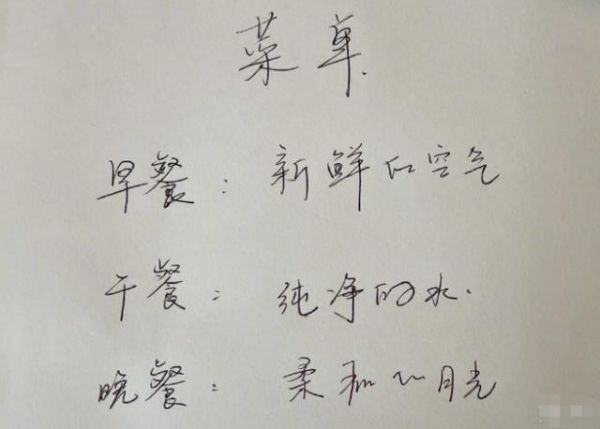 菜单
早餐：新鲜的空气
干餐：纯净的水.
晚餐：柔和的月光